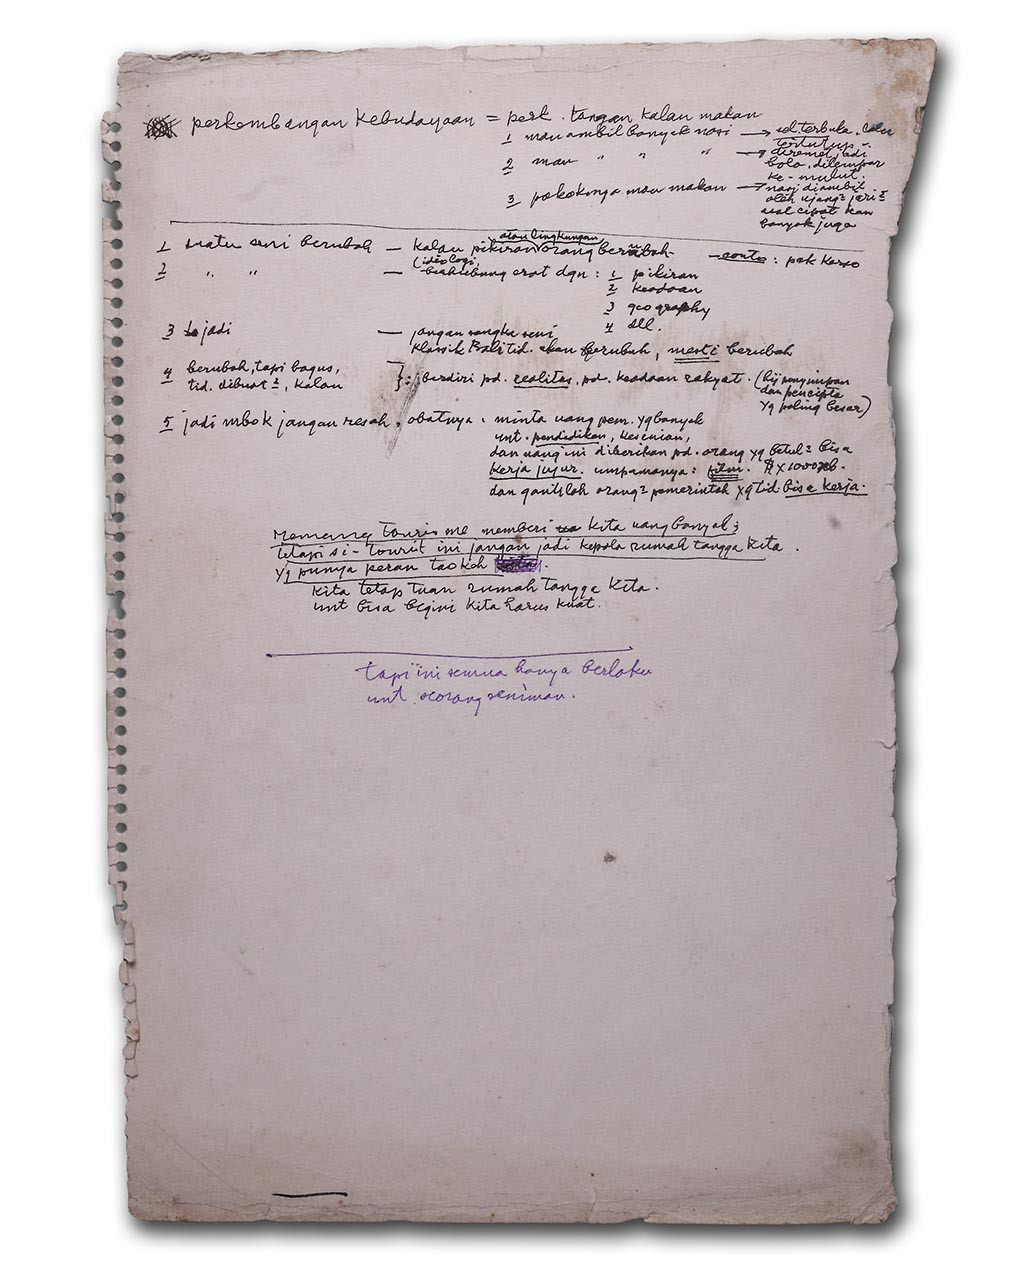 perkembangan Kebudayaan = perk. tangan kalau makan
1 mau ambil banyak nasi → terbuka
2 mau " " " → diremet jadi
bola. dilempar
ke-mulut.
3 pokoknya mau makan → nasi diambil
oleh ujung² jari²
asal cepat kan
banyak juga
1 suatu seni berubah — kalau pikiran atau lingkungan orang berubah — conto: pak Karso
(ideologi)
2 " " — berhubung erat dgn: 1 pikiran
2 keadaan
3 geography
4 dll.
3 jadi — jangan sangka seni
klassik Bali tid. akan berubah, mesti berubah
4 berubah, tapi bagus,
tid. dibuat², kalau }: berdiri pd. realitas, pd. keadaan rakyat. (
dan pencipta
yg paling besar)
5 jadi mbok jangan resah, obatnya. minta uang pem. yg banyak
unt. pendidikan, kesenian,
dan uang ini diberikan pd. orang yg betul² bisa
kerja jujur. umpamanya:
dan gantilah orang² pemerintah yg tid. bisa kerja.
Memang tourisme memberi kita uang banyak;
tetapi si-tourist ini jangan jadi kepala rumah tangga kita.
yg punya peran taokeh
kita tetap tuan rumah tangga kita.
unt bisa begini kita harus kuat.
tapi ini semua hanya berlaku
unt. seorang seniman.